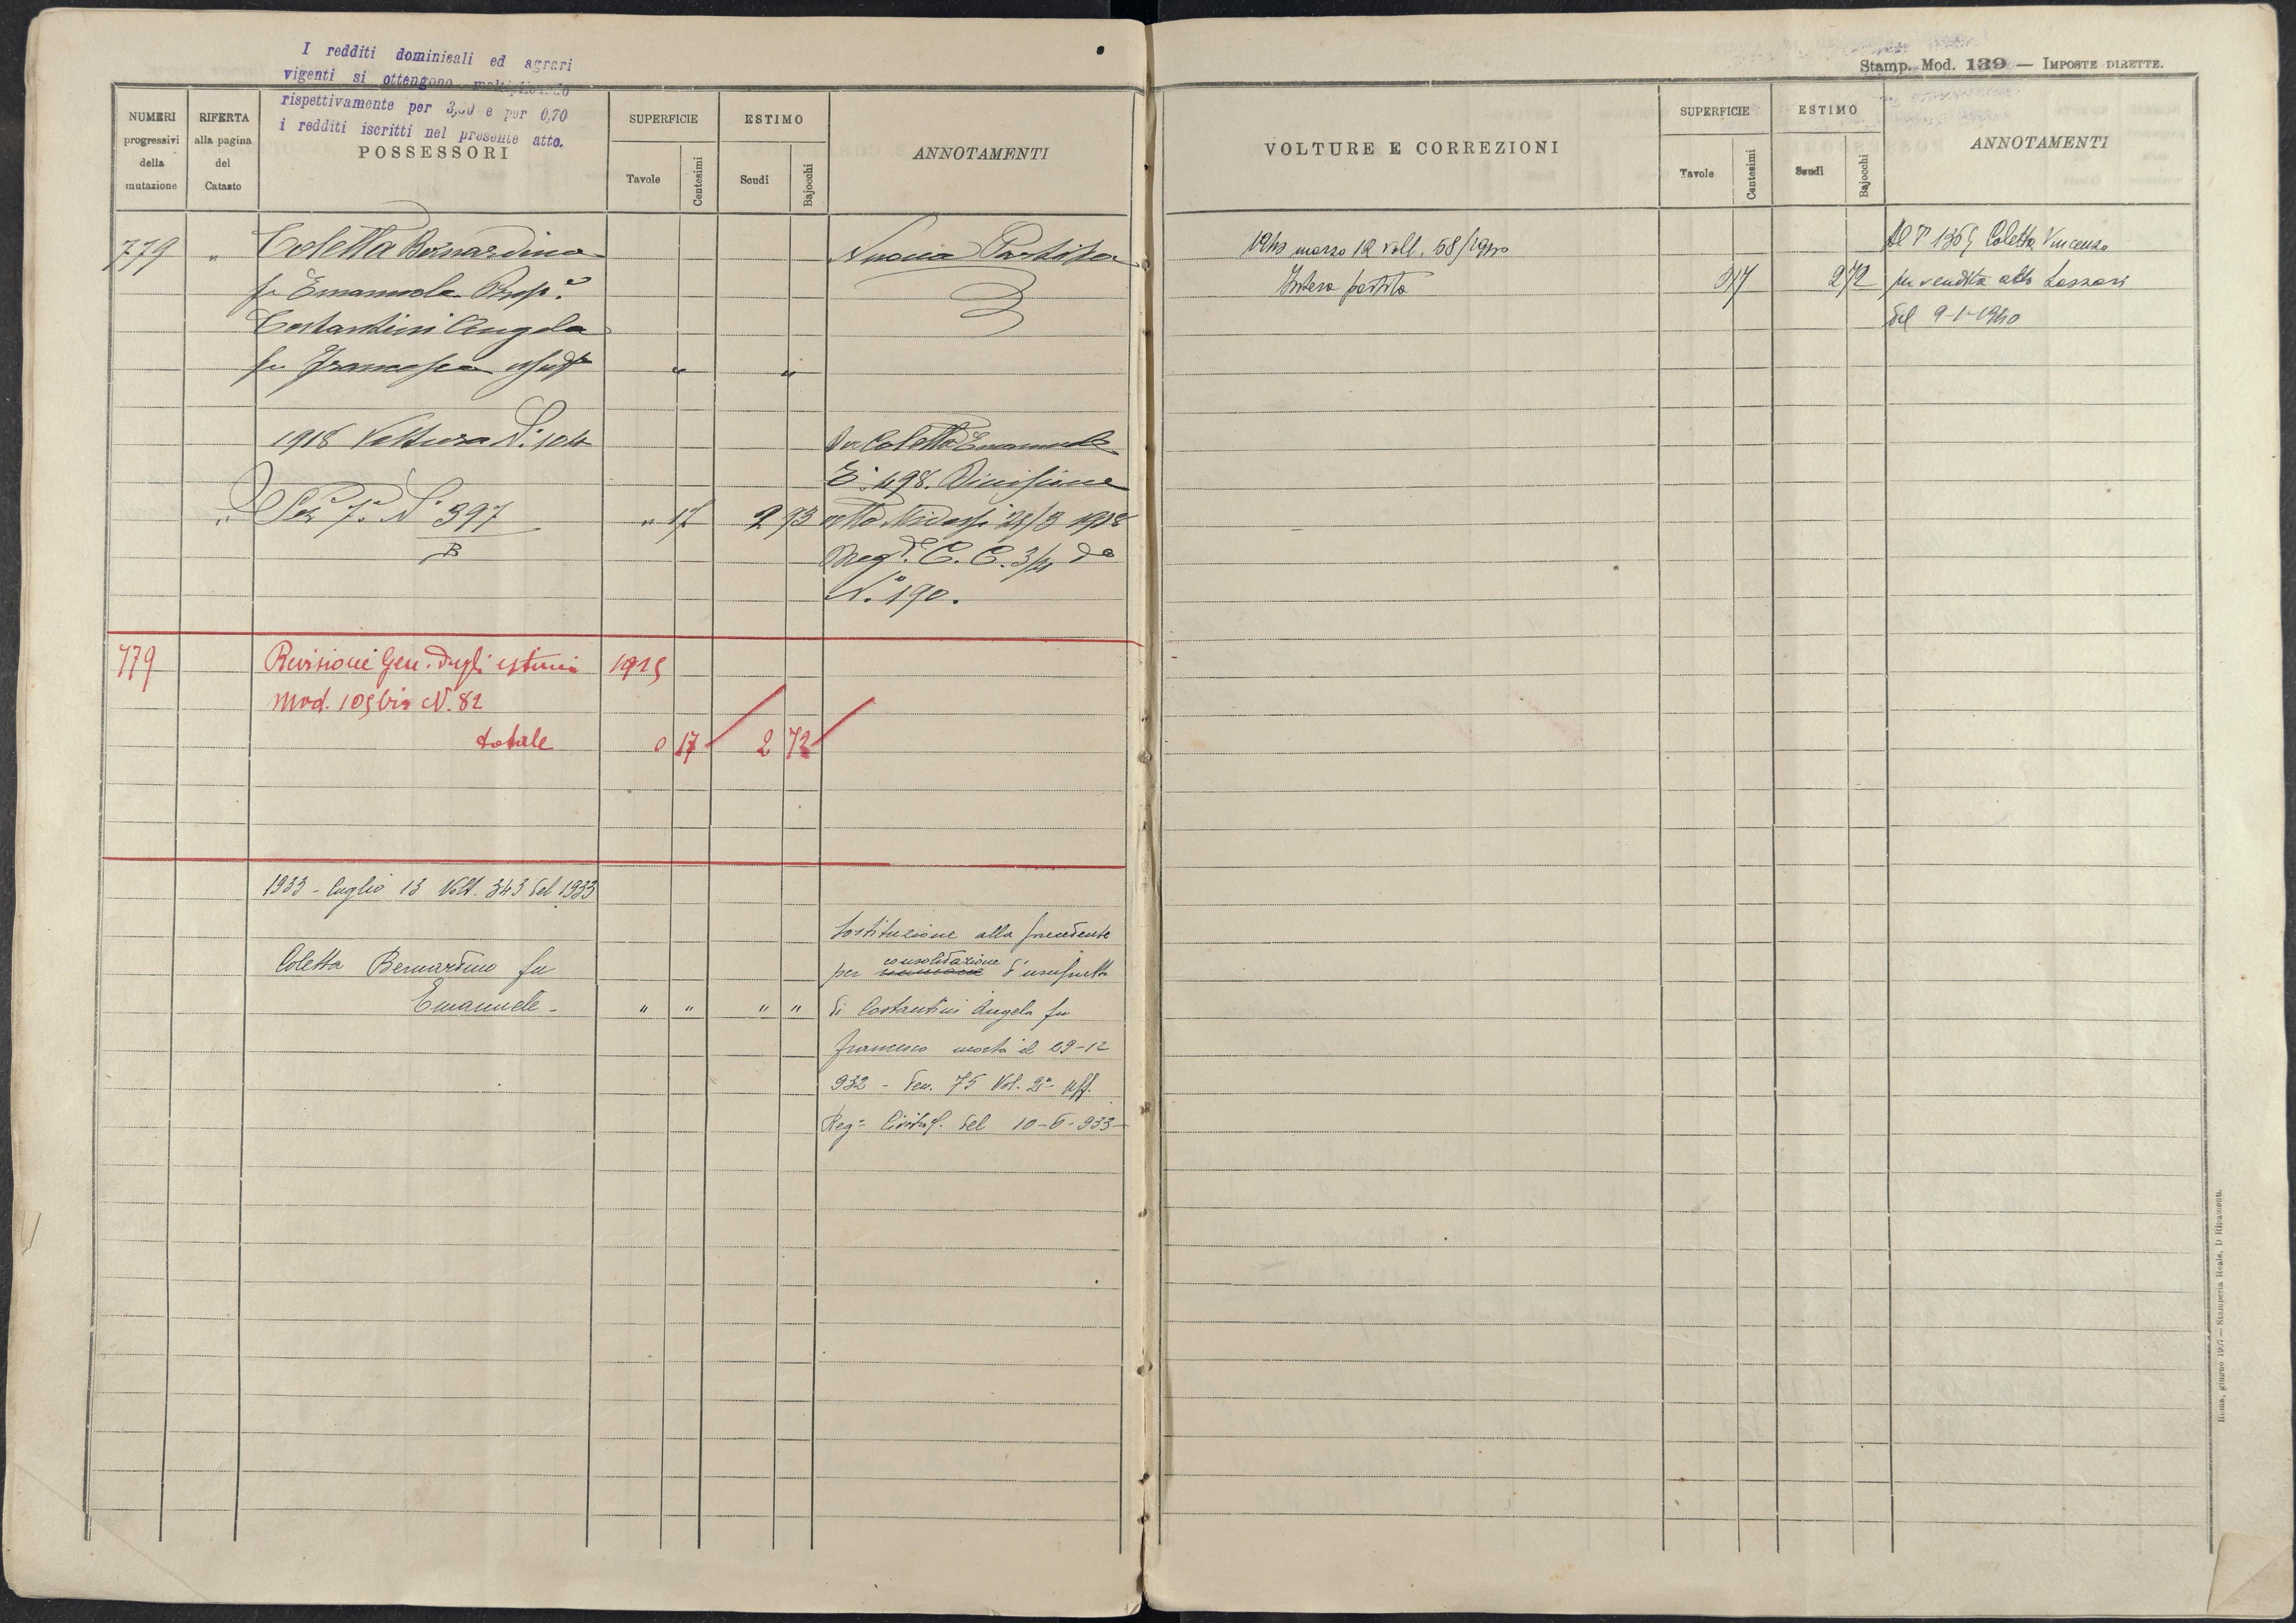 I redditi dominicali ed agrari
vigenti si ottengono moltiplicando
rispettivamente per 3,00 e per 0,70
i redditi iscritti nel presente atto.
NUMERI
progressivi
della
mutazione
RIFERTA
alla pagina
del
Catasto
POSSESSORI
SUPERFICIE
Tavole
Centesimi
ESTIMO
Scudi
Bajocchi
ANNOTAMENTI
779 " Coletta Bernardino Nuova Partita
fu Emanuele Prop.º
Costantini Angela
fu Francesco usuf " "
1918 Voltura N. 104 Da Coletta Emanuele
E. 498. Divisione
" Sez 7ª N° 397 " 17 2 93 atto 28/3 1918
B Reg.to C. C. 3/4 do
N.° 190.
779 Revisione Gen. degli estimi 1925
Mod. 105 bis N. 82
totale 0 17 2 72
1933 - luglio 13 Volt. 343 del 1933
Sostituzione alla precedente
Coletta Bernardino fu per consolidazione d'usufrutto
Emanuele - " " " " di Costantini Angela fu
Francesco morta il 29-12
932 - Den. 75 Vol. 2° Uff.
Reg° del 10-6-933
Stamp. Mod. 139 — IMPOSTE DIRETTE.
VOLTURE E CORREZIONI
SUPERFICIE
Tavole
Centesimi
ESTIMO
Scudi
Bajocchi
ANNOTAMENTI
1940 marzo 12 volt. 58/1940 Al P 1365 Coletta Vincenzo
Intera partita 0 17 2 72 per vendita atto
del 9-1-1940
Roma, giugno 1917 — Stamperia Reale, D Ripamonti.